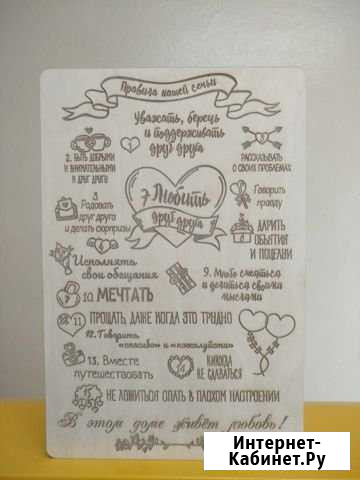 Правила нашей семьи
Уважать, беречь
и поддерживать
друг друга
1
2. БЫТЬ ДОБРЫМИ
И ВНИМАТЕЛЬНЫМИ
К ДРУГ ДРУГУ
8
РАССКАЗЫВАТЬ
О СВОИХ ПРОБЛЕМАХ
3.
Радовать
друг друга
и делать сюрпризы
7 Любить
друг друга
Говорить
правду
ДАРИТЬ
ОБЪЯТИЯ
И ПОЦЕЛУИ
Исполнять
свои обещания
9. Много смеяться
и делиться своими
мыслями
10. МЕЧТАТЬ
11 ПРОЩАТЬ, ДАЖЕ КОГДА ЭТО ТРУДНО
12. Говорить
«спасибо» и «пожалуйста»
13. Вместе
путешествовать
14 НИКОГДА
НЕ СДАВАТЬСЯ
15 НЕ ЛОЖИТЬСЯ СПАТЬ В ПЛОХОМ НАСТРОЕНИИ
В этом доме живёт любовь!
Интернет-
Кабинет.Ру